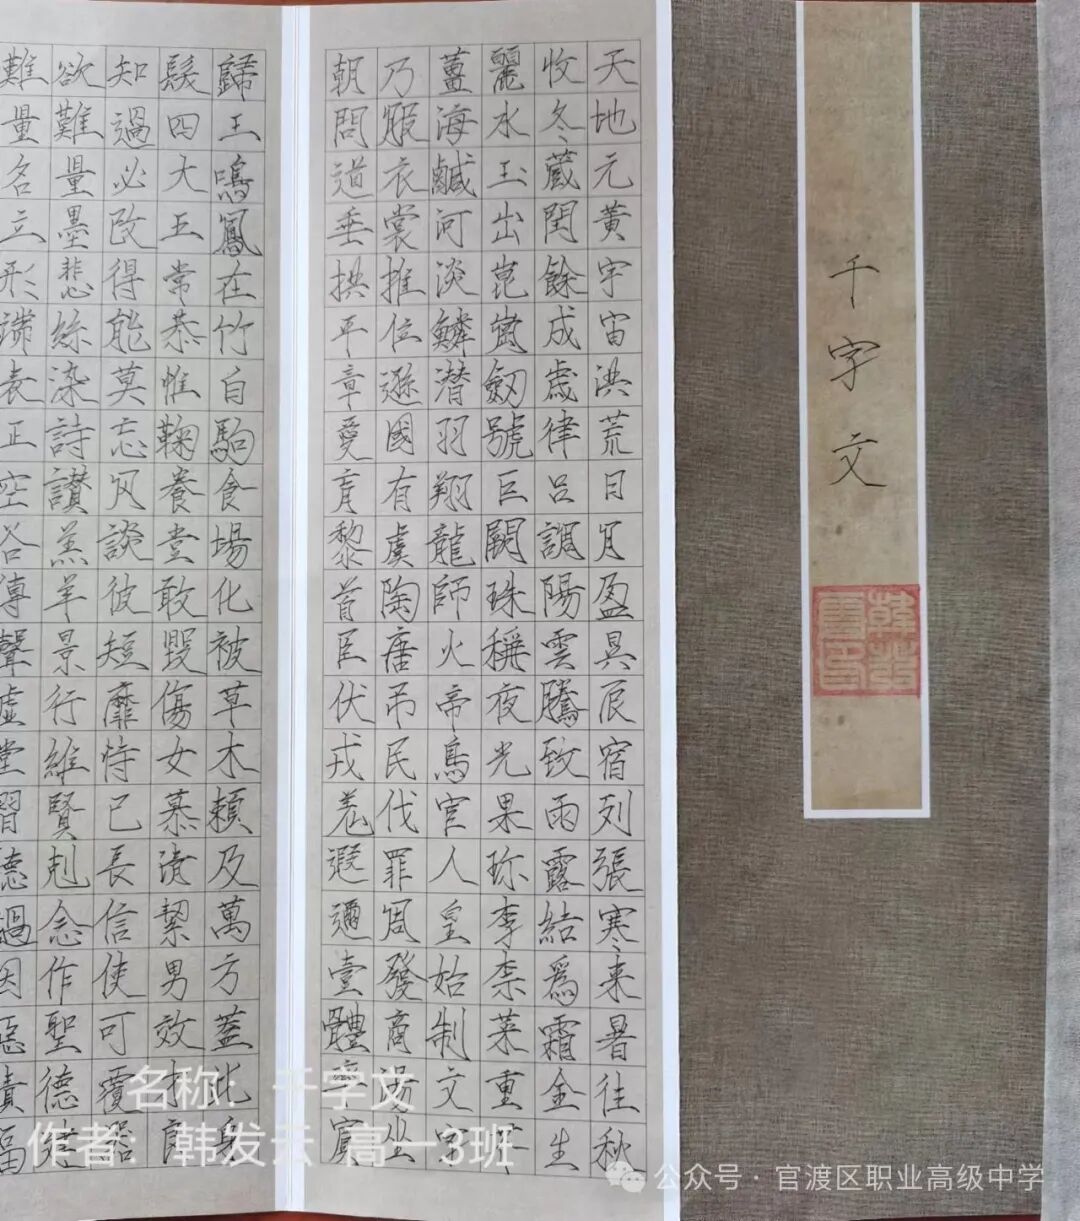 千字文
天地元黃宇宙洪荒日月盈昃辰宿列張寒来暑往秋
收冬藏閏餘成歲律呂調陽雲騰致雨露結為霜金生
麗水玉出崑崗劍號巨闕珠稱夜光果珍李柰菜重芥
薑海鹹河淡鱗潛羽翔龍師火帝鳥官人皇始制文字
乃服衣裳推位遜國有虞陶唐吊民伐罪周發商湯坐
朝問道垂拱平章愛育黎首臣伏戎羌遐邇壹體率賓
歸王鳴鳳在竹白駒食場化被草木賴及萬方蓋此身
髮四大五常恭惟鞠養豈敢毀傷女慕清絜男效才良
知過必改得能莫忘罔談彼短靡恃己長信使可覆器
欲難量墨悲絲染詩讚羔羊景行維賢剋念作聖德建
難量名立形端表正空谷傳聲虛堂習聽禍因惡積福
名称：千字文
作者：韩发云 高一3班
公众号·官渡区职业高级中学